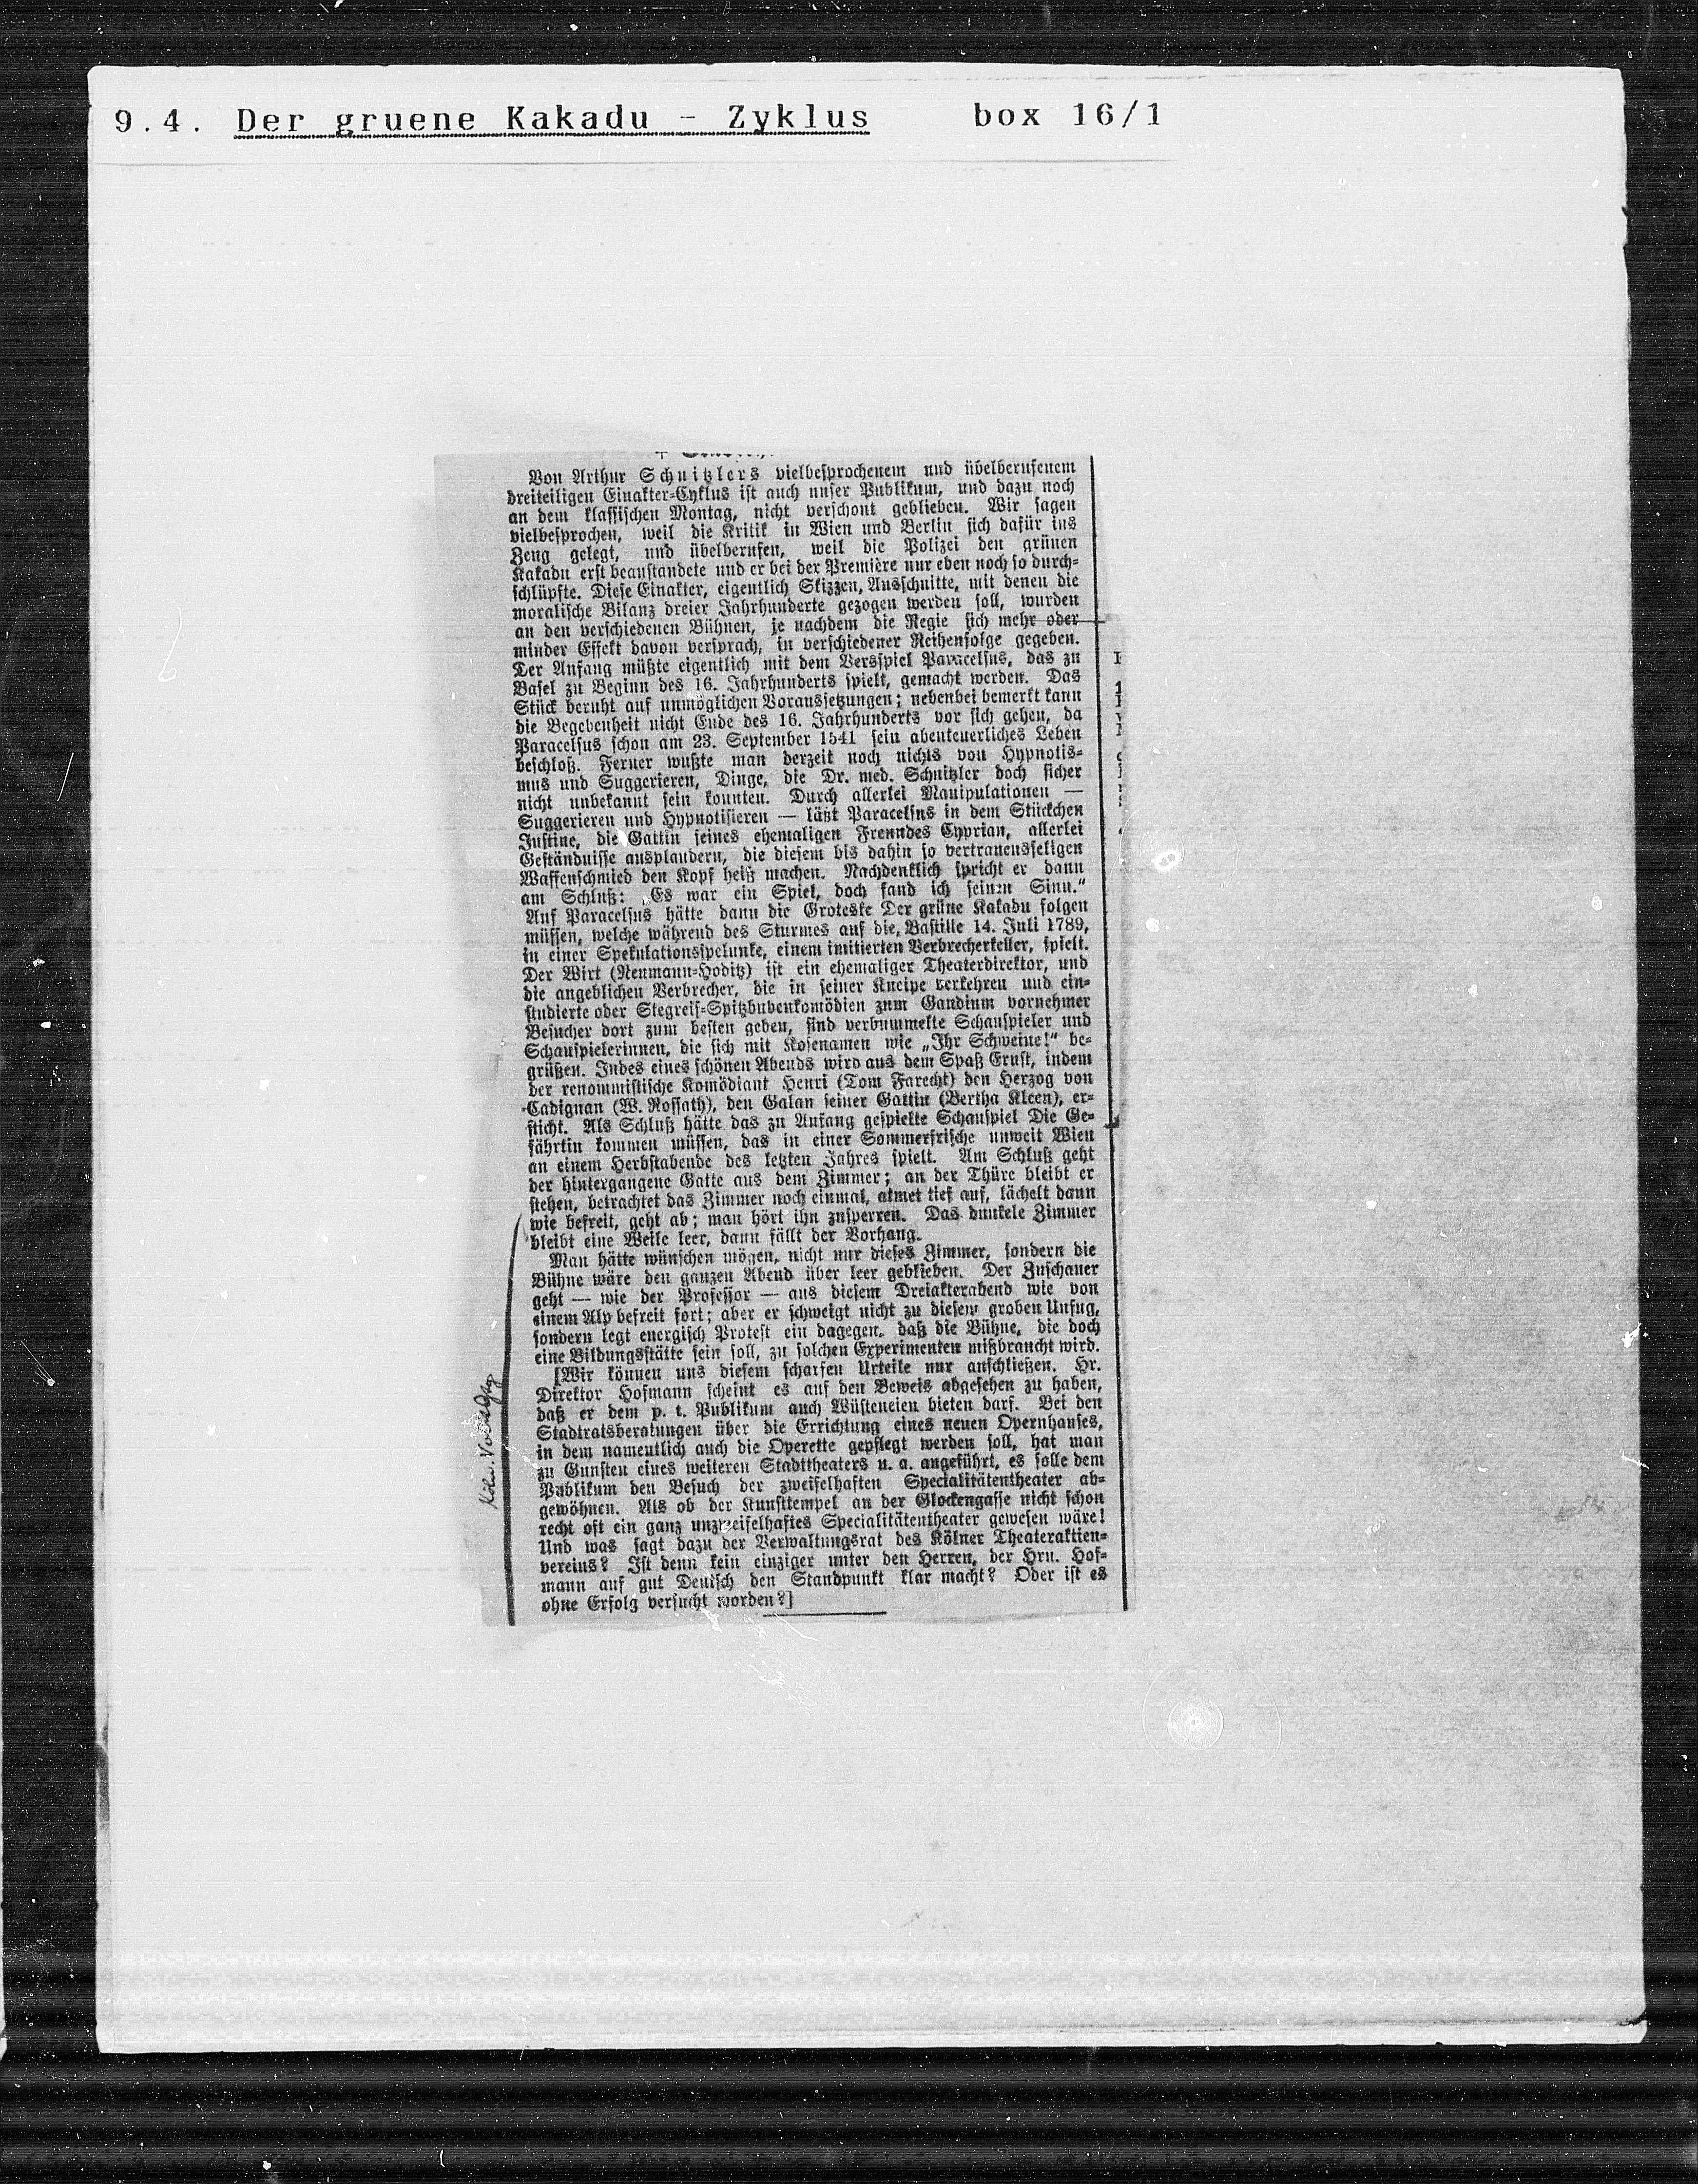 9.4. Der gruene Kakadu - Zyklus box 16/1
Von Arthur Schnitzlers vielbesprochenem und übelberufenem
dreiteiligen Einakter-Cyklus ist auch unser Publikum, und dazu noch
an dem klassischen Montag, nicht verschont geblieben. Wir sagen
vielbesprochen, weil die Kritik in Wien und Berlin sich dafür ins
Zeug gelegt, und übelberufen, weil die Polizei den grünen
Kakadu erst beanstandete und er bei der Première nur eben noch so durch-
schlüpfte. Diese Einakter, eigentlich Skizzen, Ausschnitte, mit denen die
moralische Bilanz dreier Jahrhunderte gezogen werden soll, wurden
an den verschiedenen Bühnen, je nachdem die Regie sich mehr oder
minder Effekt davon versprach, in verschiedener Reihenfolge gegeben.
Der Anfang müßte eigentlich mit dem Versspiel Paracelsus, das zu
Basel zu Beginn des 16. Jahrhunderts spielt, gemacht werden. Das
Stück beruht auf unmöglichen Voraussetzungen; nebenbei bemerkt kann
die Begebenheit nicht Ende des 16. Jahrhunderts vor sich gehen, da
Paracelsus schon am 23. September 1541 sein abenteuerliches Leben
beschloß. Ferner wußte man derzeit noch nichts von Hypnotis-
mus und Suggerieren, Dinge, die Dr. med. Schnitzler doch sicher
nicht unbekannt sein konnten. Durch allerlei Manipulationen —
Suggerieren und Hypnotisieren — läßt Paracelsus in dem Stückchen
Justine, die Gattin seines ehemaligen Freundes Cyprian, allerlei
Geständnisse ausplaudern, die diesem bis dahin so vertrauensseligen
Waffenschmied den Kopf heiß machen. Nachdenklich spricht er dann
am Schluß: „Es war ein Spiel, doch fand ich seinen Sinn.“
Auf Paracelsus hätte dann die Groteske Der grüne Kakadu folgen
müssen, welche während des Sturmes auf die Bastille 14. Juli 1789,
in einer Spekulationsspelunke, einem imitierten Verbrecherkeller, spielt.
Der Wirt (Neumann-Hoditz) ist ein ehemaliger Theaterdirektor, und
die angeblichen Verbrecher, die in seiner Kneipe verkehren und ein-
studierte oder Stegreif-Spitzbubenkomödien zum Gaudium vornehmer
Besucher dort zum besten geben, sind verbummelte Schauspieler und
Schauspielerinnen, die sich mit Kosenamen wie „Ihr Schweine!“ be-
grüßen. Indes eines schönen Abends wird aus dem Spaß Ernst, indem
der renommistische Komödiant Henri (Tom Farecht) den Herzog von
Cadignan (W. Rossath), den Galan seiner Gattin (Bertha Kleen), er-
sticht. Als Schluß hätte das zu Anfang gespielte Schauspiel Die Ge-
fährtin kommen müssen, das in einer Sommerfrische unweit Wien
an einem Herbstabende des letzten Jahres spielt. Am Schluß geht
der hintergangene Gatte aus dem Zimmer; an der Thüre bleibt er
stehen, betrachtet das Zimmer noch einmal, atmet tief auf, lächelt dann
wie befreit, geht ab; man hört ihn zusperren. Das dunkele Zimmer
bleibt eine Weile leer, dann fällt der Vorhang.
Man hätte wünschen mögen, nicht nur dieses Zimmer, sondern die
Bühne wäre den ganzen Abend über leer geblieben. Der Zuschauer
geht — wie der Professor — aus diesem Dreiakterabend wie von
einem Alp befreit fort; aber er schweigt nicht zu diesem groben Unfug,
sondern legt energisch Protest ein dagegen, daß die Bühne, die doch
eine Bildungsstätte sein soll, zu solchen Experimenten mißbraucht wird.
[Wir können uns diesem scharfen Urteile nur anschließen. Hr.
Direktor Hofmann scheint es auf den Beweis abgesehen zu haben,
daß er dem p. t. Publikum auch Wüsteneien bieten darf. Bei den
Stadtratsberatungen über die Errichtung eines neuen Opernhauses,
in dem namentlich auch die Operette gepflegt werden soll, hat man
zu Gunsten eines weiteren Stadttheaters u. a. angeführt, es solle dem
Publikum den Besuch der zweifelhaften Specialitätentheater ab-
gewöhnen. Als ob der Kunsttempel an der Glockengasse nicht schon
recht oft ein ganz unzweifelhaftes Specialitätentheater gewesen wäre!
Und was sagt dazu der Verwaltungsrat des Kölner Theateraktien-
vereins? Ist denn kein einziger unter den Herren, der Hrn. Hof-
mann auf gut Deutsch den Standpunkt klar macht? Oder ist es
ohne Erfolg versucht worden?]